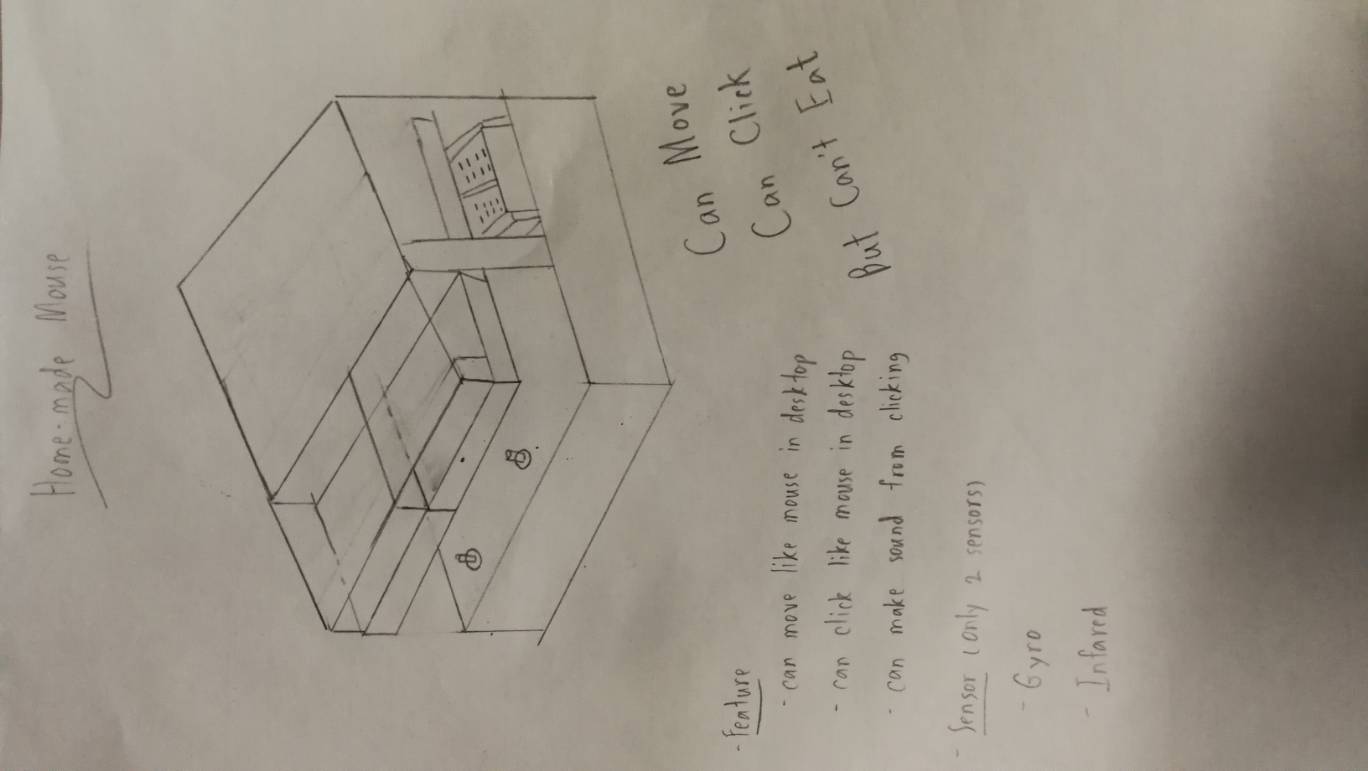 Home-made Mouse
Can Move
Can Click
But Can't Eat
- Feature
- can move like mouse in desktop
- can click like mouse in desktop
- can make sound from clicking
- Sensor (only 2 sensors)
- Gyro
- Infared